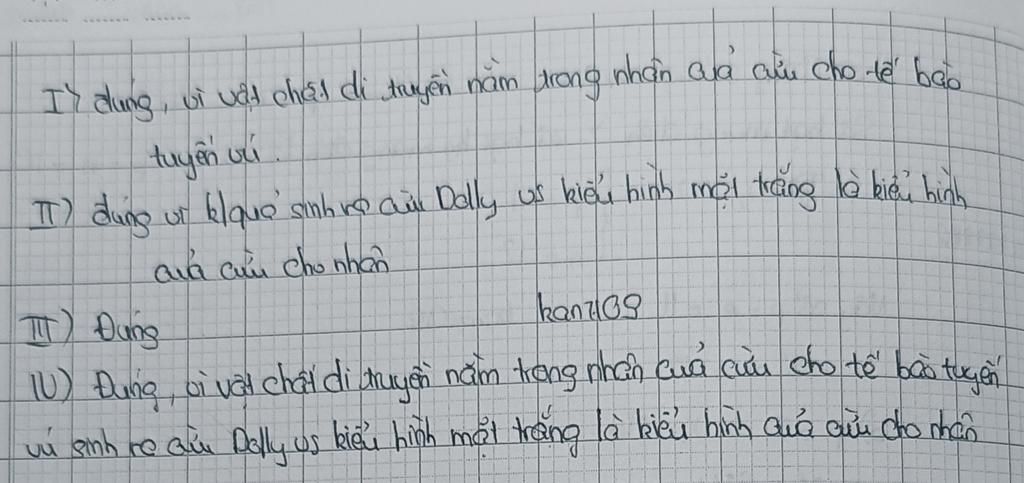 I) đúng, vì vật chất di truyền nằm trong nhân của cừu cho tế bào
tuyến vú.
II) đúng vì kquả sinh ra cừu Dolly vs kiểu hình mặt trắng là kiểu hình
của cừu cho nhân
III) Đúng
kan7109
IV) Đúng, vì vật chất di truyền nằm trong nhân của cừu cho tế bào tuyến
vú sinh ra cừu Dolly vs kiểu hình mặt trắng là kiểu hình của cừu cho nhân